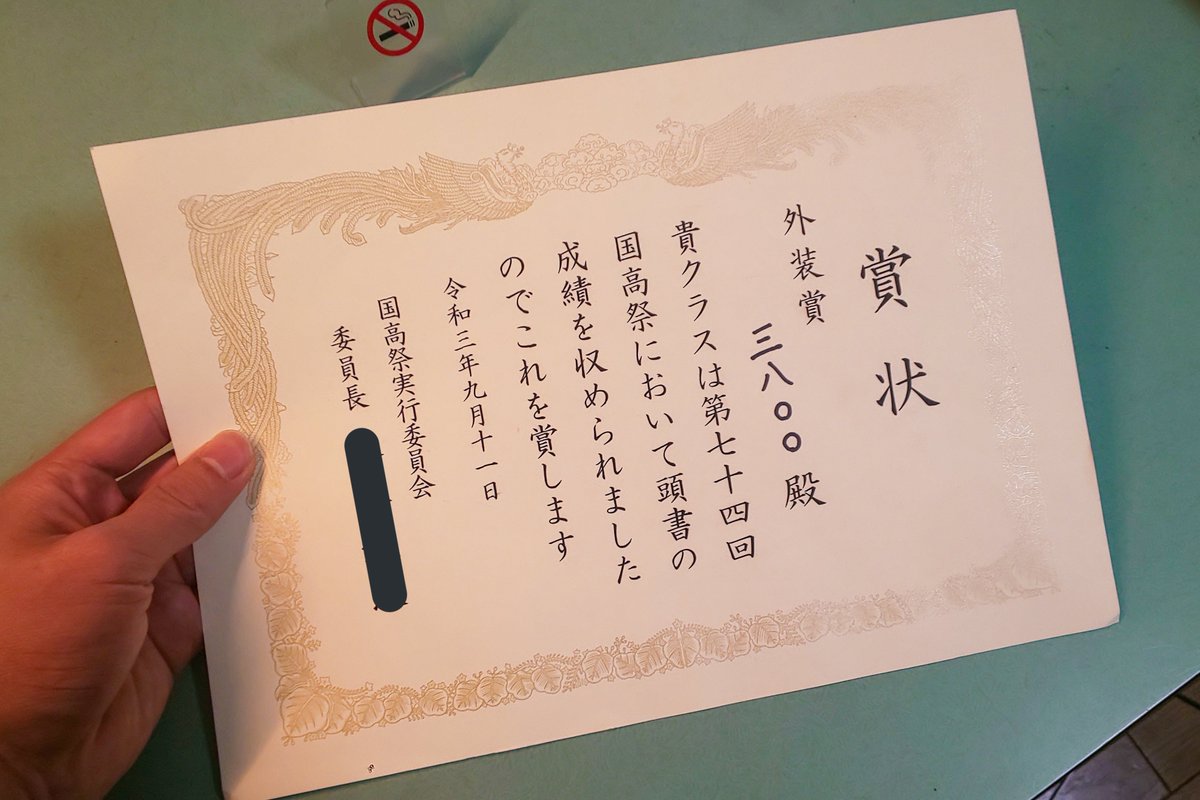 賞状
外装賞
三八〇〇 殿
貴クラスは第七十四回
国高祭において頭書の
成績を収められました
のでこれを賞します
令和三年九月十一日
国高祭実行委員会
委員長